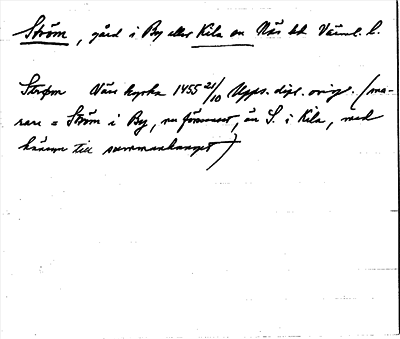 Ström, gård i By eller Kila sn Näs hd Värml. l.
Strøm Näs kyrka 1455 21/10 Upps. dipl. orig. (sna-
rare = Ström i By, nu försvunnet, än S. i Kila, med
hänsyn till sammanhanget)